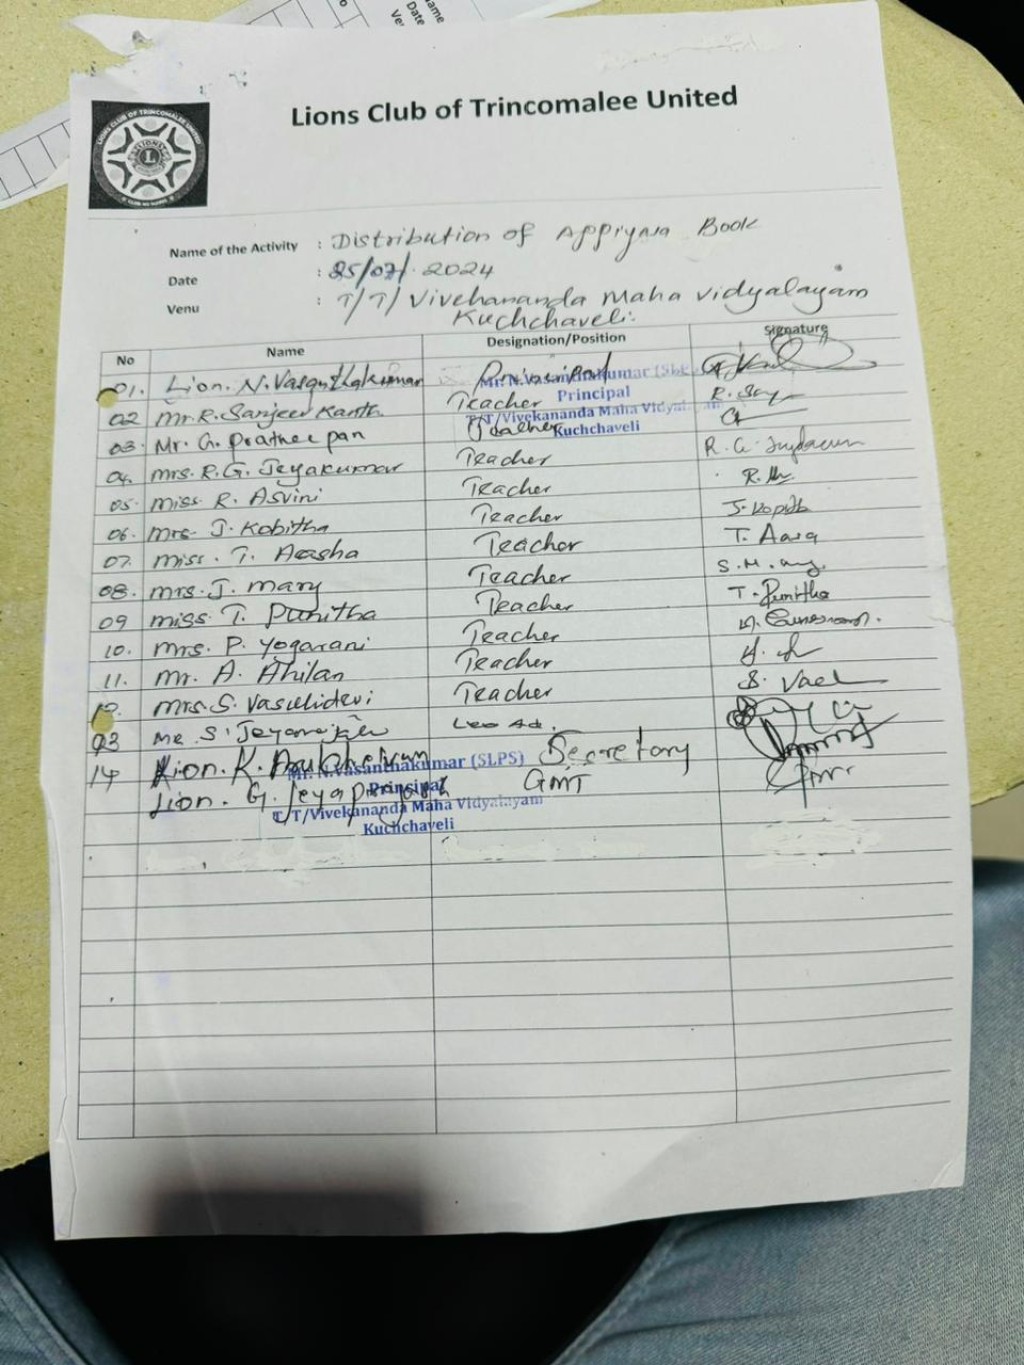 Name
Date
Ve
Lions Club of Trincomalee United
LIONS CLUB OF TRINCOMALEE UNITED
L
Name of the Activity : Distribution of Appiyasa Book
Date : 25/07/. 2024
Venu : T/T/ Vivekananda Maha vidyalayam
Kuchchaveli.
No Name Designation/Position Signature
01. Lion. N. Vasanthakumar Principal
Mr. N. Vasanthakumar (SLPS)
Principal
T/T/Vivekananda Maha Vidyalayam
Kuchchaveli
02 Mr. R. Sanjeev Kanth Teacher
03. Mr. G. Pratheepan Teacher
04. Mrs. R.G. Jeyakumar Teacher R. G.
05. Miss. R. Asvini Teacher
06. Mrs. J. Kobitha Teacher
07. Miss. T. Aasha Teacher T.
08. Mrs. J. Mary Teacher S. M.
09 Miss T. Punitha Teacher T. Punitha
10. Mrs. P. Yogarani Teacher
11. Mr. A. Ahilan Teacher
12. Mrs. S. Vasukidevi Teacher S.
03 Mr. S. Leo Ad.
14 Lion. K. Secretary
Lion. G. GMT
Mr. N. Vasanthakumar (SLPS)
Principal
T/T/Vivekananda Maha Vidyalayam
Kuchchaveli